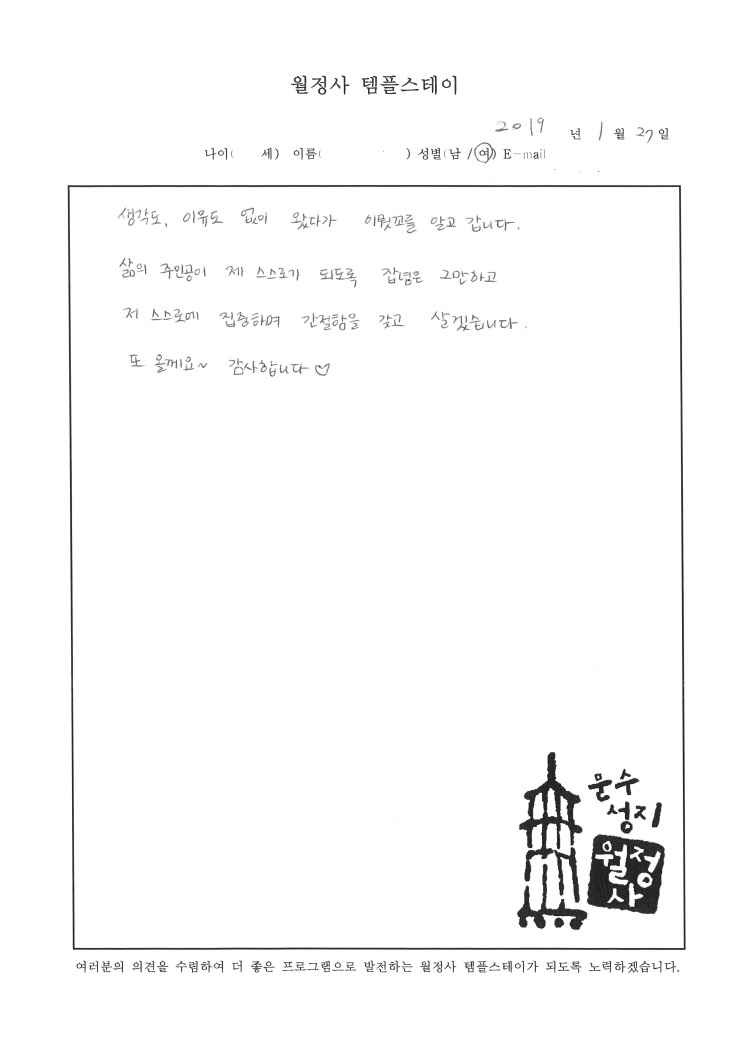 월정사 템플스테이
2019 년 1 월 27 일
나이( 세) 이름( ) 성별(남 / 여) E-mail
생각도, 이유도 없이 왔다가 이뭣꼬를 알고 갑니다.
삶의 주인공이 제 스스로가 되도록 잡념은 그만하고
저 스스로에 집중하며 간절함을 갖고 살겠습니다.
또 올께요~ 감사합니다♡
문수
성지
월정
사
여러분의 의견을 수렴하여 더 좋은 프로그램으로 발전하는 월정사 템플스테이가 되도록 노력하겠습니다.